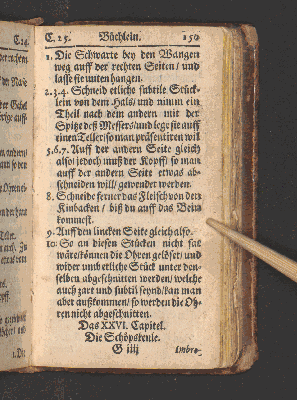 C. 25. Büchlein. 150
1. Die Schwarte bey den Wangen
weg auff der rechten Seiten/ und
lasse sie unten hangen.
2.3.4. Schneid etliche subtile Stück-
lein von dem Hals/ und nimm ein
Theil nach dem andern mit der
Spitze deß Messers/ und lege sie auff
einen Teller/ so man præsentiren wil
5.6.7. Auff der andern Seite gleich
also/ jedoch muß der Kopff/ so man
auff der andern Seite etwas ab-
schneiden will/ gewendet werden.
8. Schneide ferner das Fleisch von den
Kinbacken/ biß du auff das Bein
kommest.
9. Auff den lincken Seite gleich also.
10. So an diesen Stücken nicht sat
wäre/ können die Ohren gelöset/ und
wider umb etliche Stück unter den-
selben abgeschnitten werden/ welche
auch zart und subtil seynd/ kan man
aber außkommen/ so werden die Oh-
ren nicht abgeschnitten.
Das XXVI. Capitel.
Die Schöpskeule.
G iiij